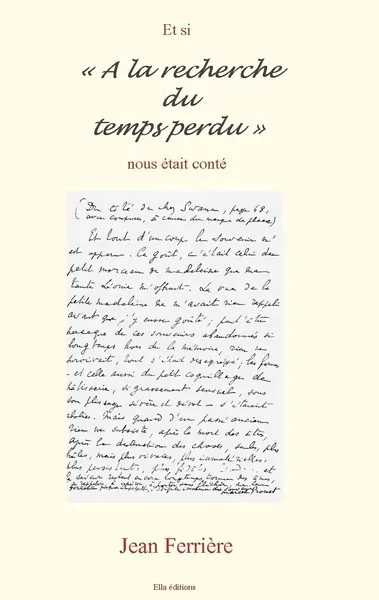 Et si
« A la recherche
du
temps perdu »
nous était conté
(Du côté de chez Swann, page 48,
avec coupures, à cause du manque de place)
Et tout d'un coup le souvenir m'
est apparu. Ce goût, c'était celui du
petit morceau de madeleine que ma
tante Léonie m'offrait. La vue de la
petite madeleine ne m'avait rien rappelé
avant que j'y eusse goûté ; peut-être
parceque de ces souvenirs abandonnés si
longtemps hors de la mémoire, rien ne
survivait, tout s'était désagrégé ; les formes
- et celle aussi du petit coquillage de
pâtisserie, si grassement sensuel, sous
son plissage sévère et dévot - s'étaient
abolies. Mais quand d'un passé ancien
rien ne subsiste, après la mort des êtres,
après la destruction des choses, seules, plus
frêles, mais plus vivaces, plus immatérielles,
plus persistantes, plus fidèles, et
la saveur restent encore longtemps, comme des âmes,
Marcel Proust
Jean Ferrière
Ella éditions